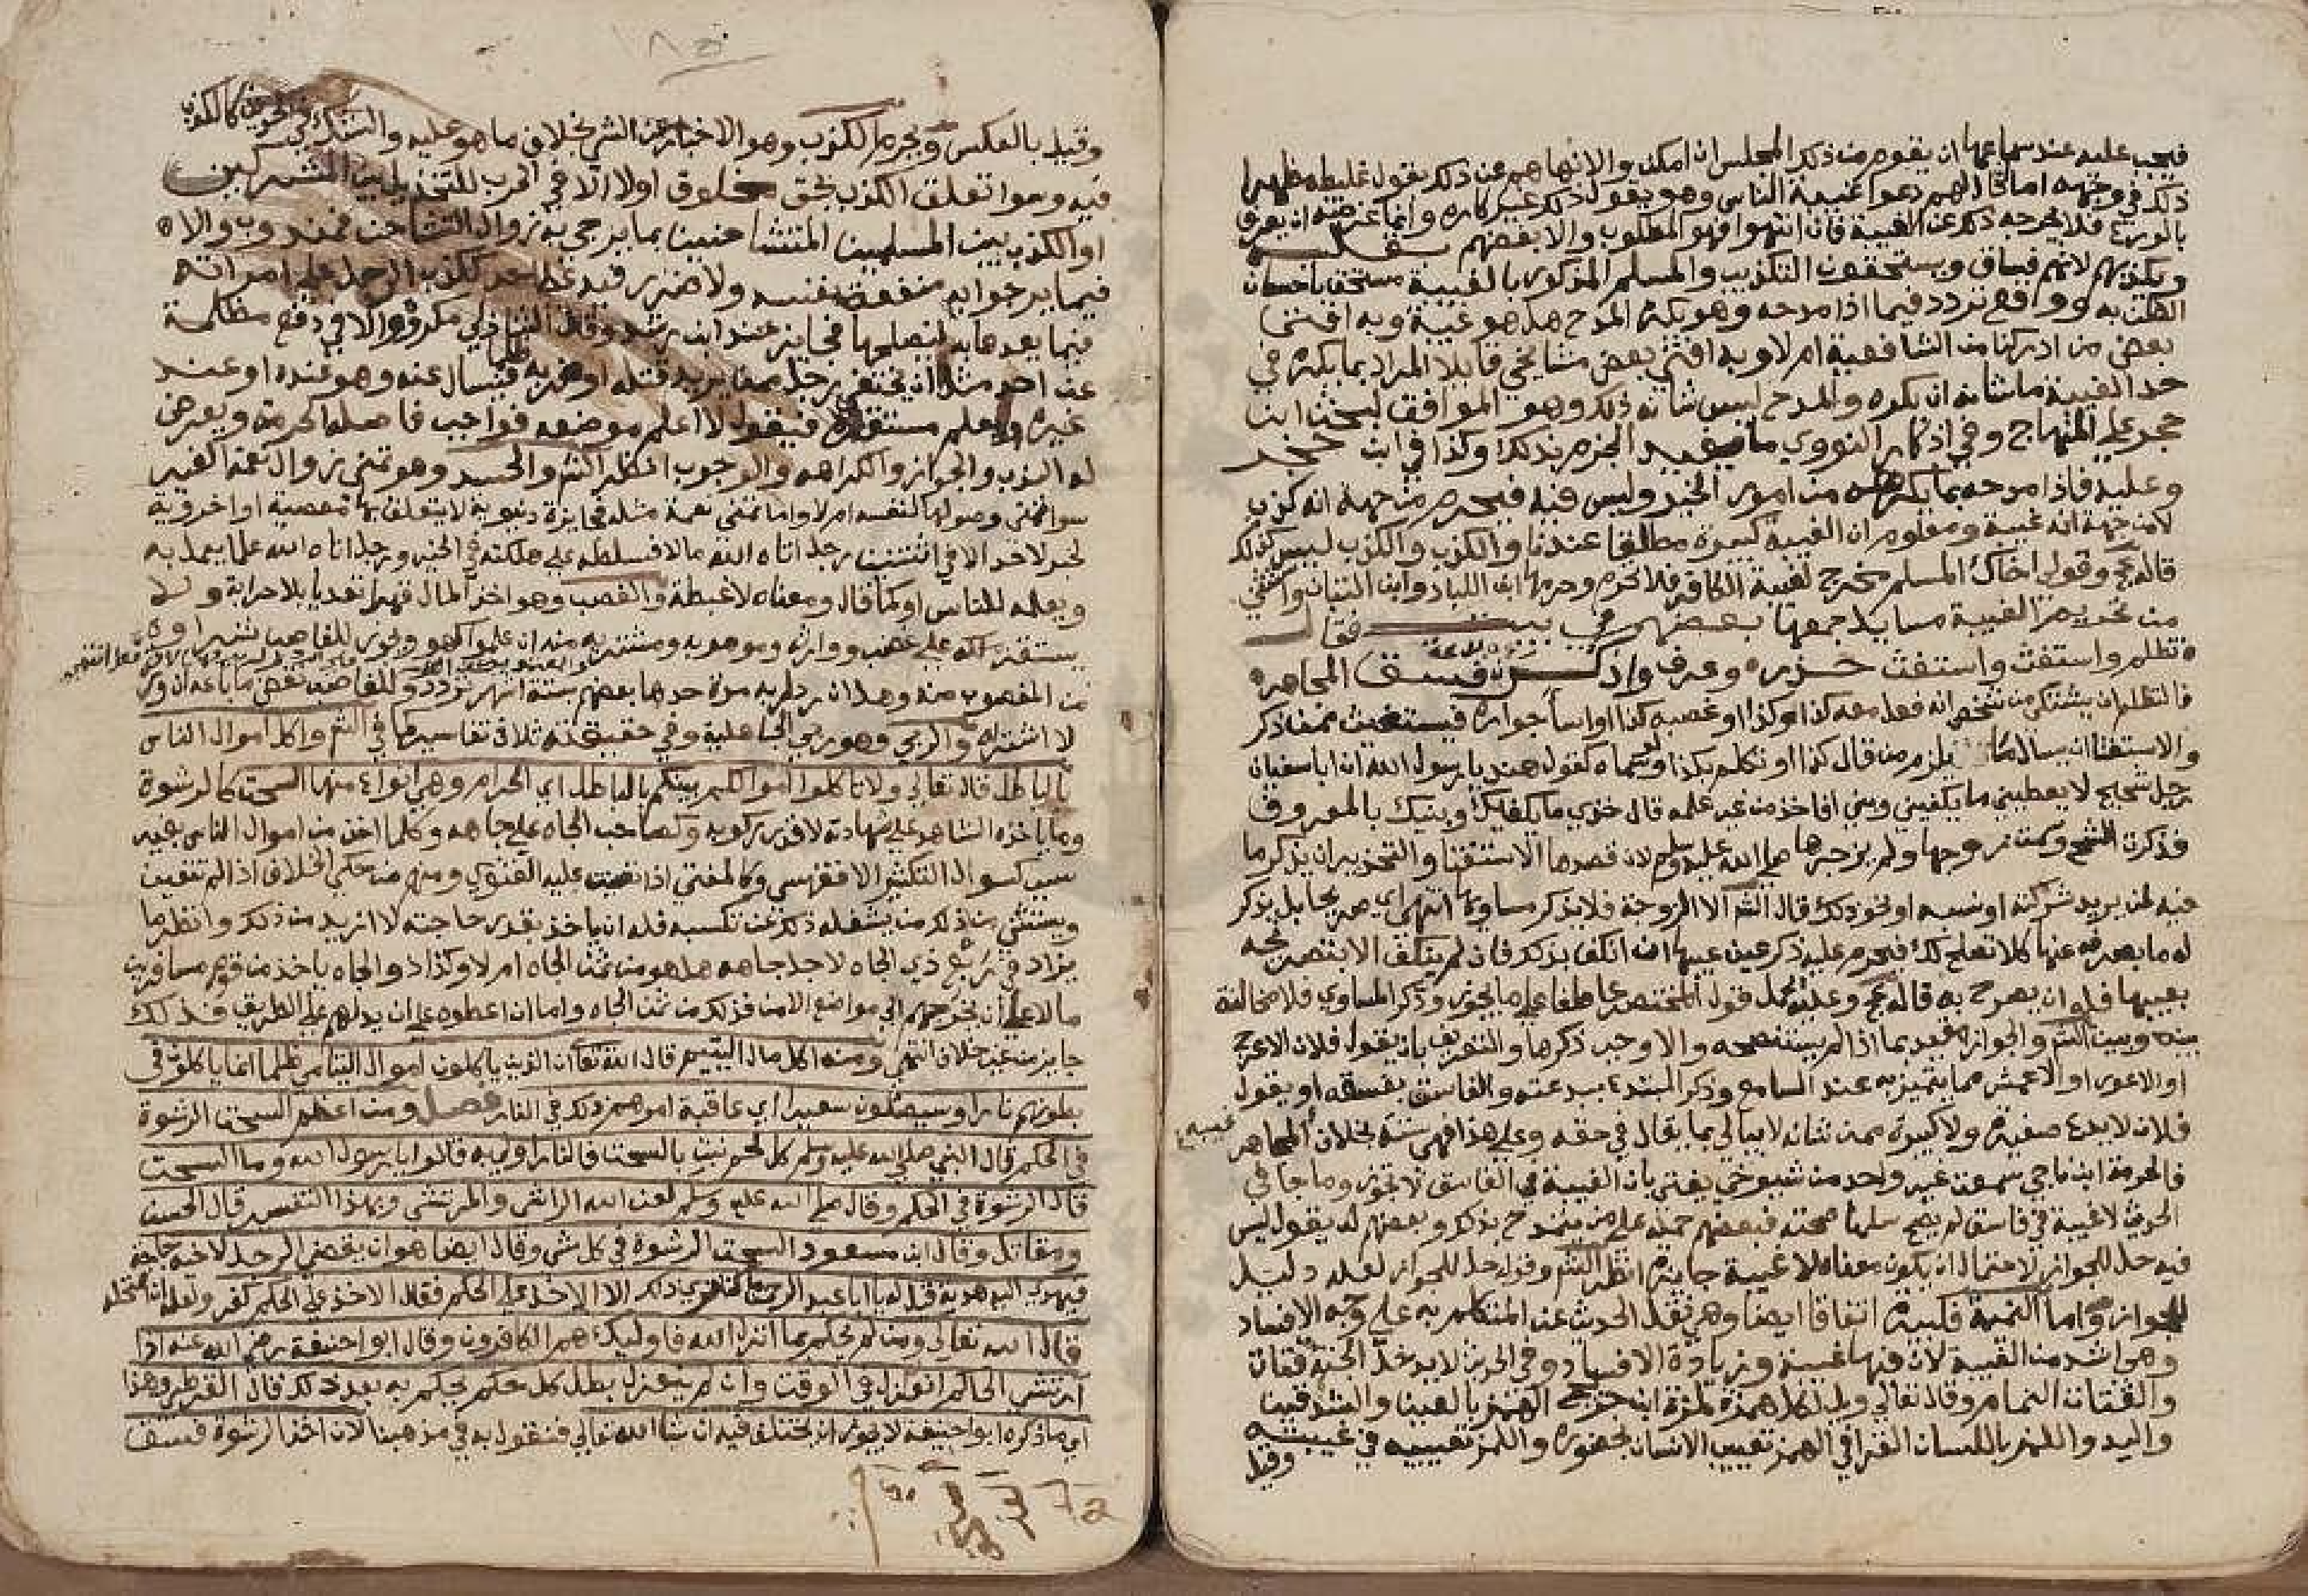 فيجب عليه عند سماعها ان يقوم من ذلك المجلس ان امكن والا نهاهم عن ذلك بقول غليظ مظهرا
ذلك في وجهه اما قالهم دعوا غيبة الناس وهو يقول ذلك غير كاره وانما غرضه ان يعرف
بالورع فلا يخرجه ذلك عن الغيبة فان انتهوا فهو المطلوب والا بغضهم بقلبه
ويكذبهم لانهم فساق ويستحقون التكذيب والمسلم المذكور بالغيبة مستحق باحسان
الظن به ووقع تردد فيما اذا مدحه وهو يكره المدح هل هو غيبة وبه افتى
بعض من ادركنا من الشافعية ام لا وبه افتى بعض مشايخي قايلا المراد بما يكره في
حد الغيبة ما شانه ان يكره والمدح ليس شانه ذلك وهو الموافق لبحث ابن
حجر على المنهاج وفي اذكار النووي ما يفيد الجزم بذلك وكذا في ابن حجر
وعليه فاذا مدحه بما يكرهه من امور الخير وليس فيه فيحرم من جهة انه كذب
لا من جهة انه غيبة ومعلوم ان الغيبة كبيرة مطلقا عندنا والكذب والكذب ليس كذلك
قاله عج وقولي اخاك المسلم مخرج لغيبة الكافر فلا تحرم وحرمها ابن اللباد وابن التبان واستثني
من تحريم الغيبة مسايل جمعها بعضهم في بيت فقال
تظلم واستغث واستفت حذر وعرف واذكرن فسق المجاهر
فالتظلم ان يشتكي من شخص انه فعل معه كذا وكذا او غصبه كذا او اساء جواره فيستغيث ممن ذكر
والاستفتا ان يسال ما يلزم من قال كذا او تكلم بكذا ولو سماه كقول هند يا رسول الله ان ابا سفيان
رجل شحيح لا يعطيني ما يكفيني وبني افاخذ من غير علمه قال خذي ما يكفيك وبنيك بالمعروف
فذكرت الشح وكمت زوجها ولم يزجرها صلى الله عليه وسلم لان قصدها الاستفتا والتحذير ان يذكر ما
فيه لمن يريد شركته او نسبه او نحو ذلك قال الشم الا الزوجة فلا يذكر مساويها انتهى اي مريحا بل يذكر
له ما يصرفه عنها كلا تصلح لك فيحرم عليه ذكر عين عيبها ان انكف بذلك فان لم ينكف الا بتصريحه
بعيبها فله ان يصرح به قاله عج وعليه يحمل قول المختصر عاطفا على ما يجوز وذكر المساوي فلا مخالفة
بينه وبين الشم والجواز مقيد بما اذا لم يستنصحه والا وجب ذكرها والتعريف بان يقول فلان الاعرج
او الاعور او الاعمش مما يتميز به عند السامع وذكر المبتدع ببدعته والفاسق بفسقه او يقول
فلان لا يدع صغيرة ولا كبيرة ممن شانه لا يبالي بما يقال في حقه وعلى هذا فهي ستة بخلاف المجاهر
فالحرمة ابن ناجي سمعت غير واحد من شيوخي يفتى بان الغيبة في الفاسق لا تجوز وما جا في
الحديث لا غيبة في فاسق لم يصح سلمنا صحته فبعضهم حمله على من يتمدح بذلك وبعضهم له يقول ليس
فيه حل للجواز لاحتمال ان يكون معناه لا غيبة جايزة انظر الشم وقوله حل للجواز لعله دليل
للجواز واما النميمة فكبيرة اتفاقا ايضا وهي نقل الحديث عن المتكلم به على وجه الافساد
وهو اشد من الغيبة لان فيها غيبة وزيادة الافساد وفي الحديث لا يدخل الجنة قتات
والقتات النمام وقال تعالى ويل لكل همزة لمزة ابن جريج الهمز بالعين والشدقين
واليد واللمز باللسان القرافي الهمز تعييب الانسان بحضوره واللمز تعييبه في غيبته
وقيل
وقيل بالعكس ويحرم الكذب وهو الاخبار عن الشي بخلاف ما هو عليه والشك في الخبر كالكذب
فيه وسوا تعلق الكذب بحق مخلوق اولا الا في الحرب للتخذيل بين المشركين
او الكذب بين المسلمين المتشاحنين بما يرجى به زوال التشاحن فمندوب والا
فيما يرجو به منفعة نفسه ولا ضرر فيه على احد ككذب الرجل على امراته
فيما يعدها به ليصلحها فجايز عند ابن رشد وقال الشاذلي مكروه والا في دفع مظلمة
عن احد مثل ان يختفي رجل ممن يريد قتله او ضربه ظلما فيسال عنه وهو عنده او عند
غيره ويعلم مستقره فيقول لا اعلم موضعه فواجب فاصله الحرمة ويعرض
له الندب والجواز والكراهة والوجوب انظر الشم والحسد وهو تمني زوال نعمة الغير
سوا تمنى وصولها لنفسه ام لا واما تمني نعمة مثله فجايزة دنيوية لا يتعلق بها معصية او اخروية
لخبر لا حسد الا في اثنتين رجل اتاه الله مالا فسلطه على هلكته في الخير ورجل اتاه الله علما يعمل به
ويعلمه للناس او كما قال ومعناه لا غبطة والغصب وهو اخذ المال قهرا تعديا بلا حرابة ولا
يستقر ملكه على غصب ووارثه وموهوبه ومشتريه منه ان علموا كهو ويجوز للغاصب شراوه
من المغصوب منه وهذا ان رد لربه مرة حدها بعضهم بستة اشهر تردد وللغاصب نقض ما باعه ان ورثه
لا اشتراه والربى وهو ربى الجاهلية وفي حقيقته ثلاث تفاسير كما في الشم واكل اموال الناس
بالباطل قال تعالى ولا تاكلوا اموالكم بينكم بالباطل اي الحرام وهي انواع منها السحت كالرشوة
وما ياخذه الشاهد على شهادته لا قدر ركوبه وكصاحب الجاه على جاهه وكلما اخذ من اموال الناس بغير
سبب كسوال التكثير الاقفهسي وكالمفتي اذا تعينت عليه الفتوى ومنهم من حكى الخلاف اذا لم تتعين
ويستثنى من ذلك من يشغله ذلك عن تكسبه فله ان ياخذ بقدر حاجته لا ازيد من ذلك وانظر ما
يزاد في ربع ذي الجاه لاجل جاهه هل هو من ثمن الجاه ام لا وكذا ذو الجاه ياخذ من قوم مسافرين
مالا على ان يخرجهم الى مواضع الامن فذلك من ثمن الجاه واما ان اعطوه على ان يدلهم على الطريق فذلك
جايز من غير خلاف انتهى ومنه اكل مال اليتيم قال الله تعالى ان الذين ياكلون اموال اليتامى ظلما انما ياكلون في
بطونهم نارا وسيصلون سعيرا اي عاقبة امرهم ذلك في النار فصل ومن اعظم السحت الرشوة
في الحكم قال النبي صلى الله عليه وسلم كل لحم نبت بالسحت فالنار اولى به قالوا يا رسول الله وما السحت
قال الرشوة في الحكم وقال صلى الله عليه وسلم لعن الله الراشي والمرتشي وبهذا التفسير قال الحسن
ومقاتل وقال ابن مسعود السحت الرشوة في كل شي وقال ايضا هو ان يقضي الرجل لاخيه حاجة
فيهدي اليه هدية قيل له يا ابا عبد الرحمن ما كنا نرى ذلك الا الاخذ على الحكم فقال الاخذ على الحكم كفر
قال الله تعالى ومن لم يحكم بما انزل الله فاوليك هم الكافرون وقال ابو حنيفة رضي الله عنه اذا
ارتشى الحاكم انعزل في الوقت وان لم يعزل بطل كل حكم يحكم به بعد ذلك قال القرطبي وهذا
اي ما ذكره ابو حنيفة لا يجوز ان يختلف فيه ان شا الله تعالى فنقول به في مذهبنا لان اخذ الرشوة فسق